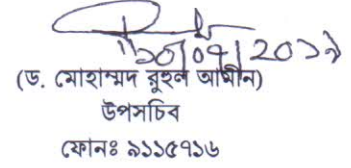 ১০/০৭/২০১৯
(ড. মোহাম্মদ রুহুল আমীন)
উপসচিব
ফোনঃ ৯১১৫৭১৬